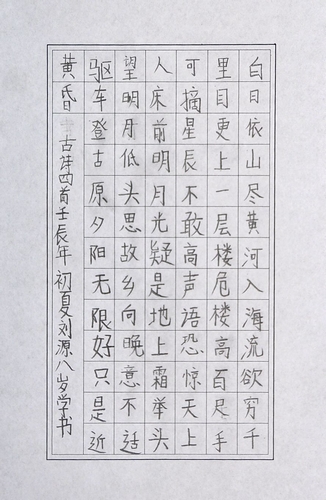 白日依山尽黄河入海流欲穷千
里目更上一层楼危楼高百尺手
可摘星辰不敢高声语恐惊天上
人床前明月光疑是地上霜举头
望明月低头思故乡向晚意不适
驱车登古原夕阳无限好只是近
黄昏 古诗四首壬辰年初夏刘源八岁学书